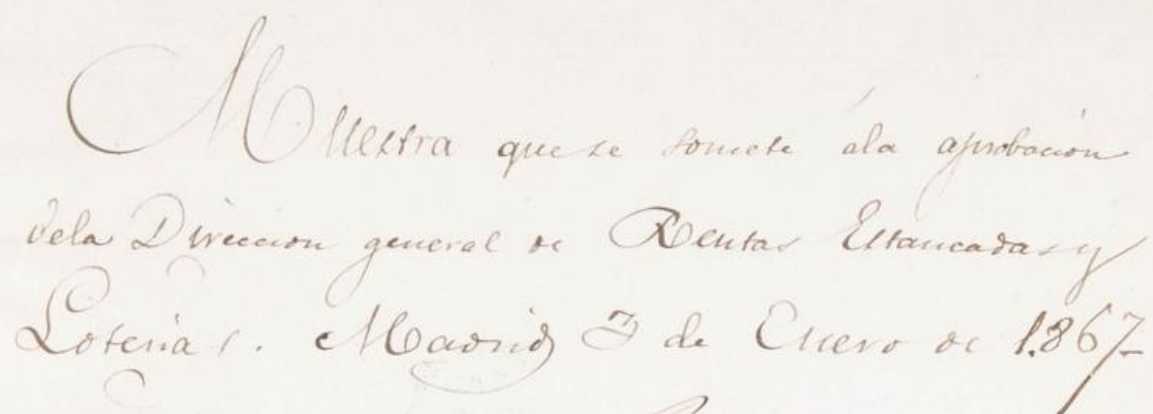 Muestra que se somete ála aprobacion
dela Direccion general de Rentas Estancadas y
Loterias. Madrid 3 de Enero de 1.867-